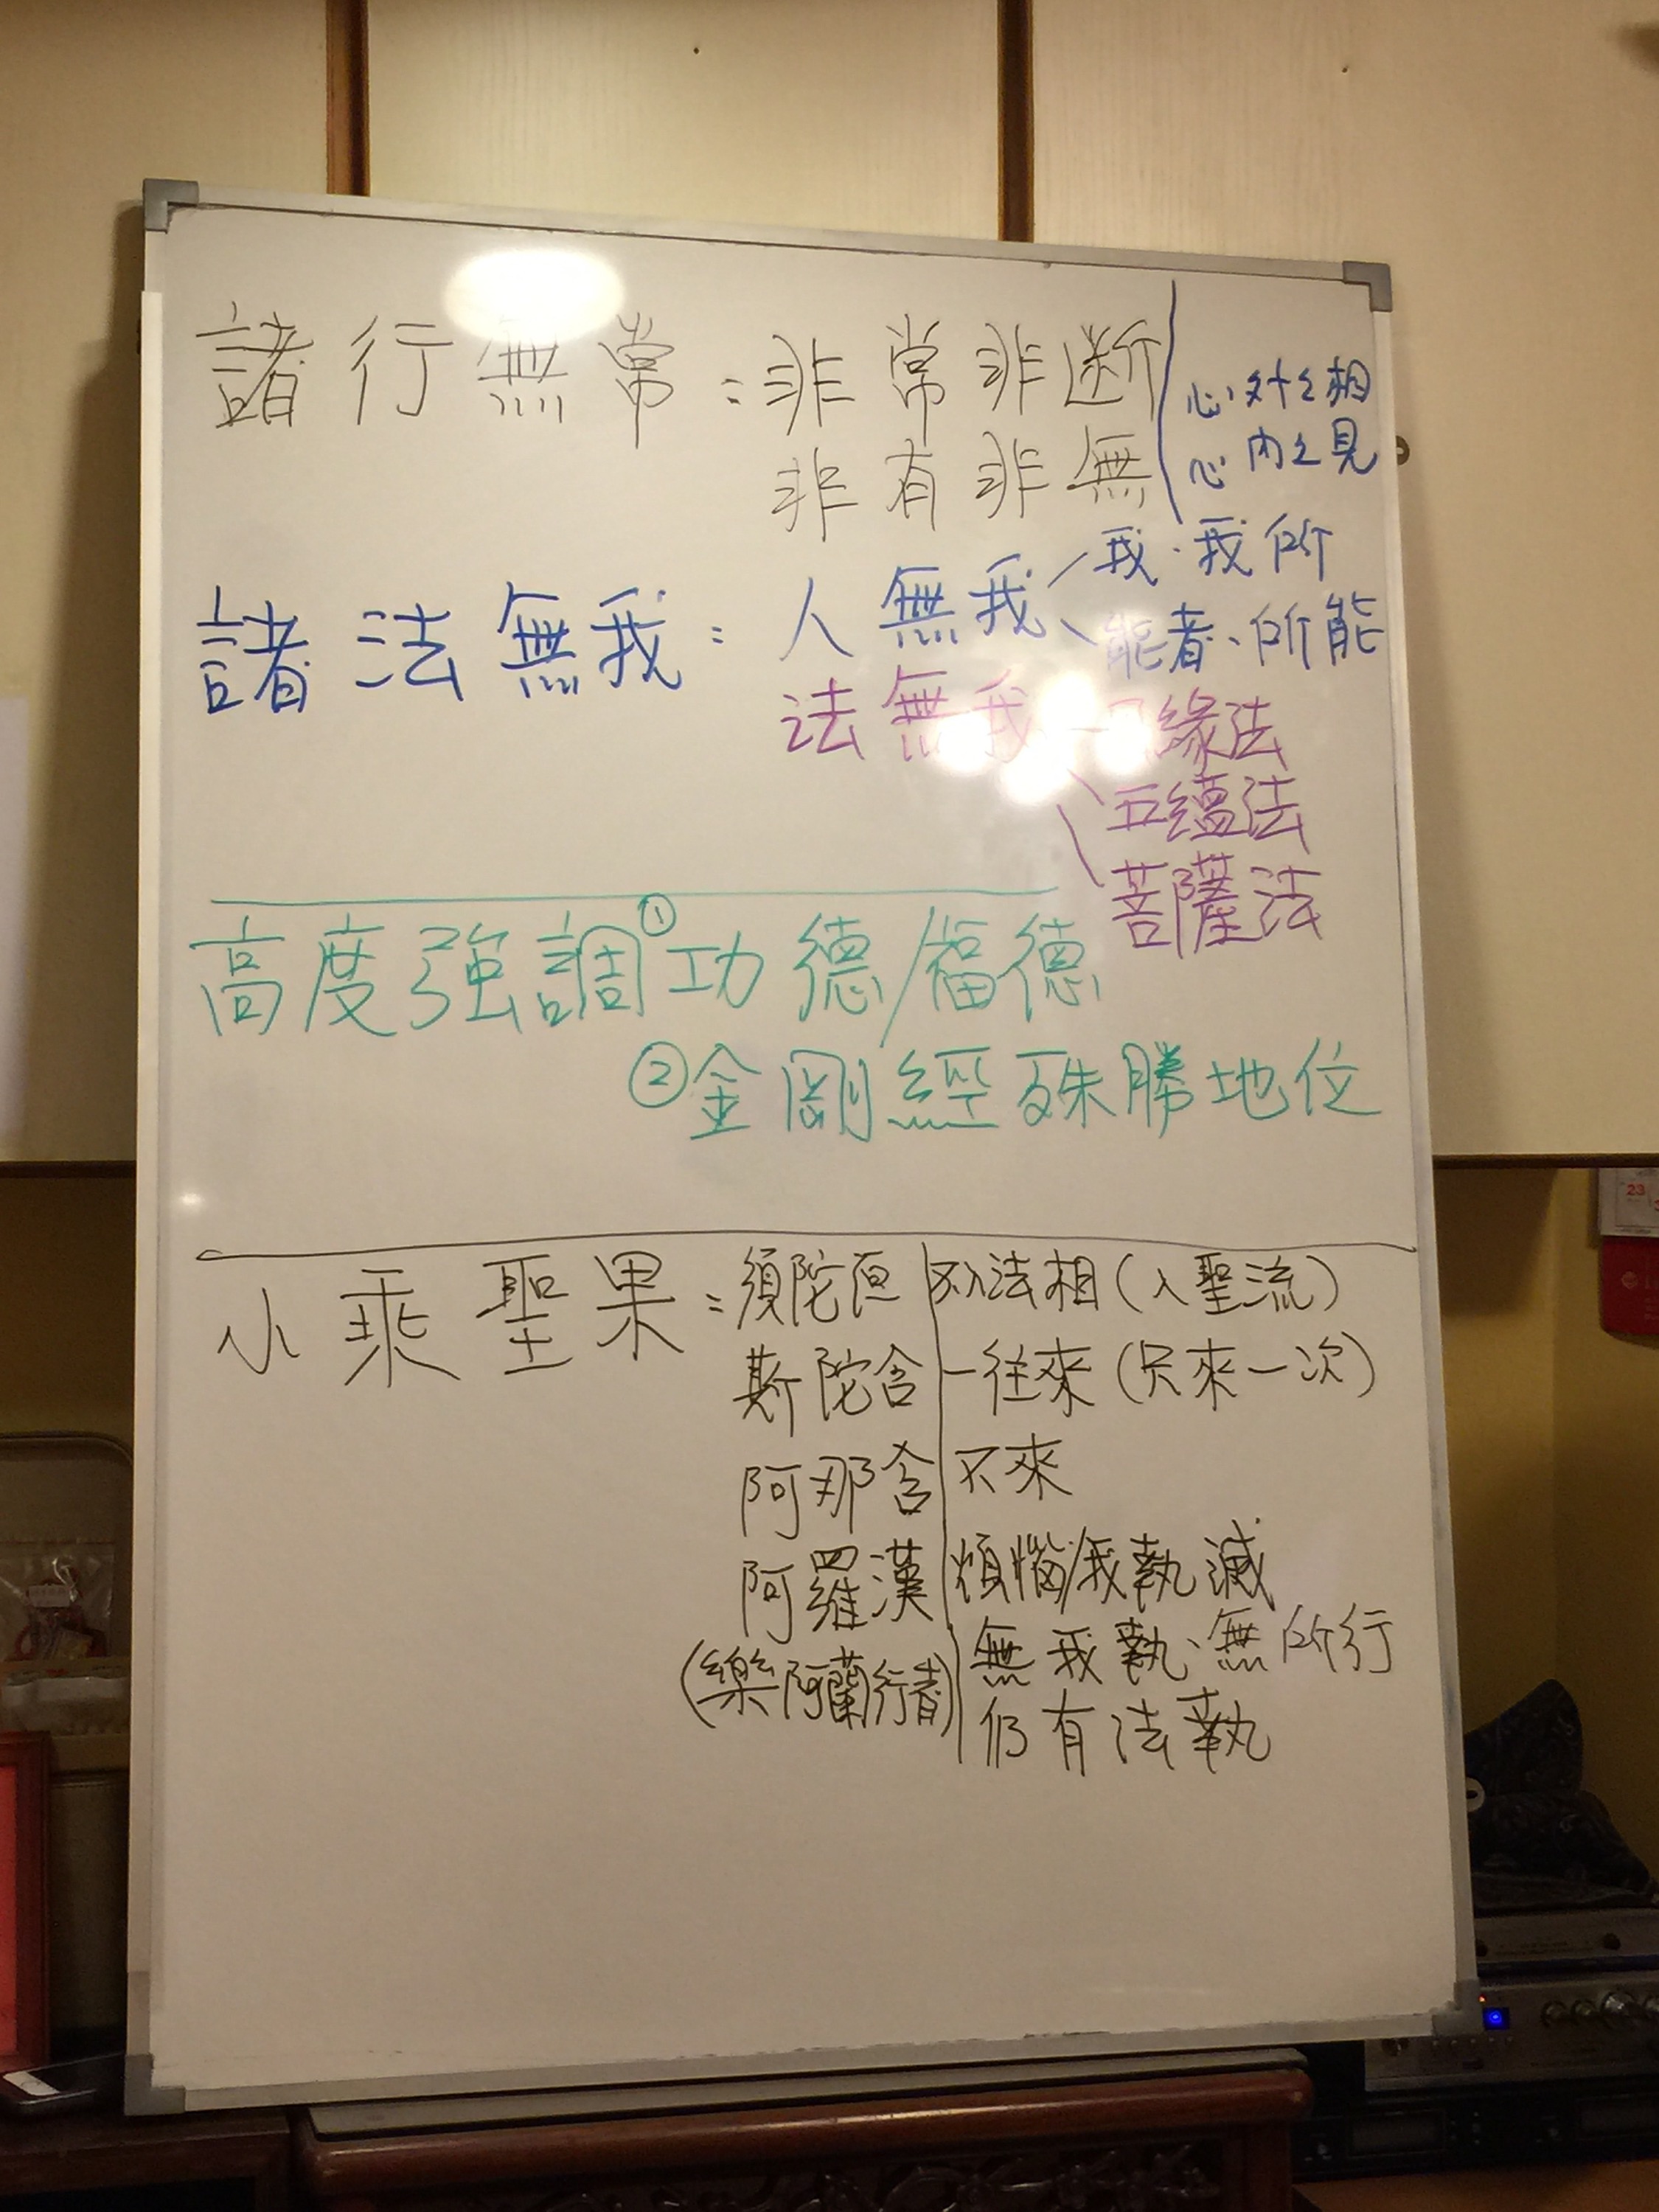 諸行無常：非常非断
非有非無
心外之相
心内之見
諸法無我：人無我
我、我所
能者、所能
法無我
緣法
五蘊法
菩薩法
高度強調①功德/福德
②金剛經殊勝地位
小乘聖果：須陀洹 不入法相（入聖流）
斯陀含 一往來（只來一次）
阿那含 不來
阿羅漢 煩惱/我執滅
（樂阿蘭行者） 無我執、無所行
仍有法執
23